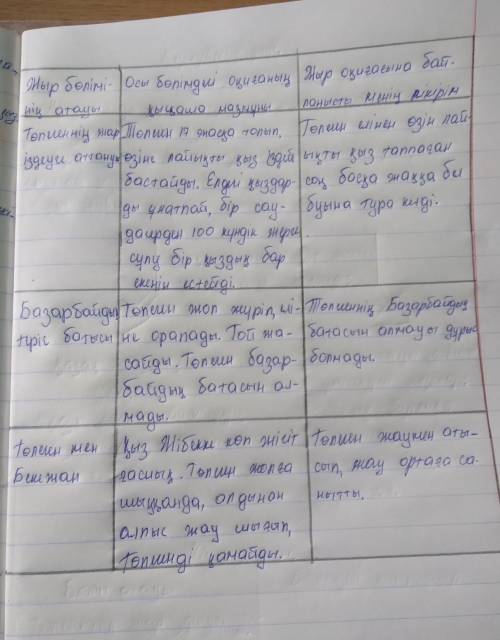 Жыр бөлімі-
нің атауы
Осы бөлімдегі оқиғаның
қысқаша мазмұны
Жыр оқиғасына бай-
ланысты менің пікірім
Төлегеннің жар
іздеуге аттануы
Төлеген 17 жасқа толып,
өзіне лайықты қыз іздей
бастайды. Елдегі қыздар-
ды ұнатпай, бір сау-
дагерден 100 күндік жерде
сұлу бір қыздың бар
екенін естейді.
Төлеген елінен өзін лай-
ықты қыз таппаған
соң басқа жаққа бел
буына тура келді.
Базарбайдың
теріс батасы
Төлеген жол жүріп, елі-
не оралады. Той жа-
сайды. Төлеген Базар-
байдың батасын ал-
мады.
Төлегеннің Базарбайдың
батасын алмауы дұрыс
болмады.
Төлеген мен
Бекежан
Қыз Жібекке көп жігіт
ғасық. Төлеген жолға
шыққанда, алдынан
алпыс жау шығып,
Төлегенді қамайды.
Төлеген жаумен аты-
сып, жау ортаға са-
нытты.